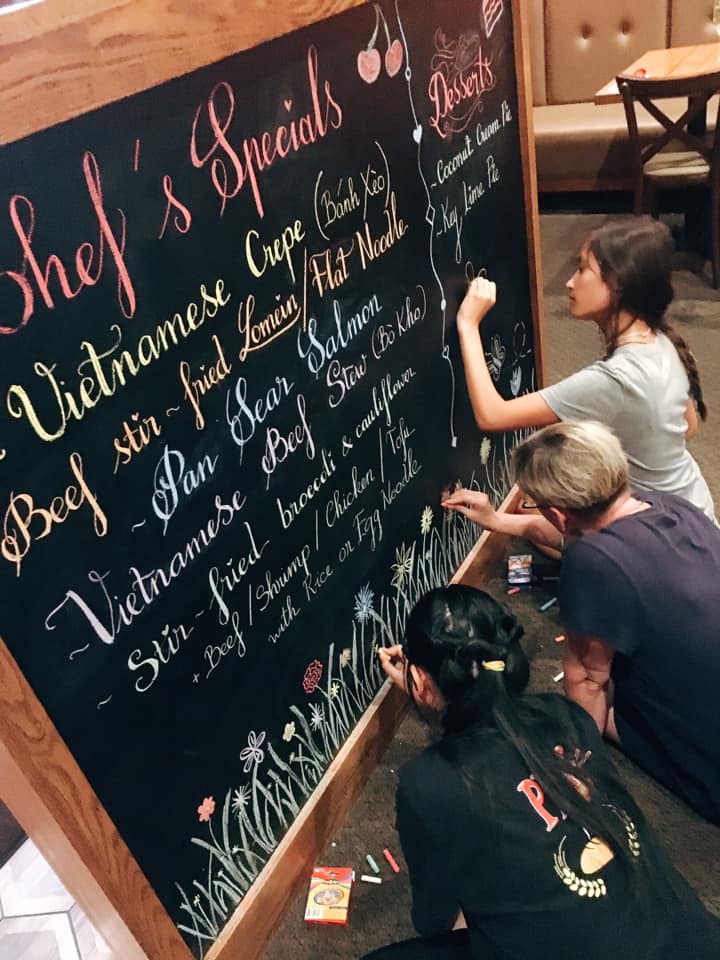 Chef's Specials
~ Vietnamese Crepe (Bánh Xèo)
Beef stir~fried Lomein/Flat Noodle
~ Pan Sear Salmon
~ Vietnamese Beef Stew (Bò Kho)
~ Stir~fried broccoli & cauliflower
+ Beef / Shrimp / Chicken / Tofu
with Rice or Egg Noodle
Desserts
~ Coconut Cream Pie
~ Key Lime Pie